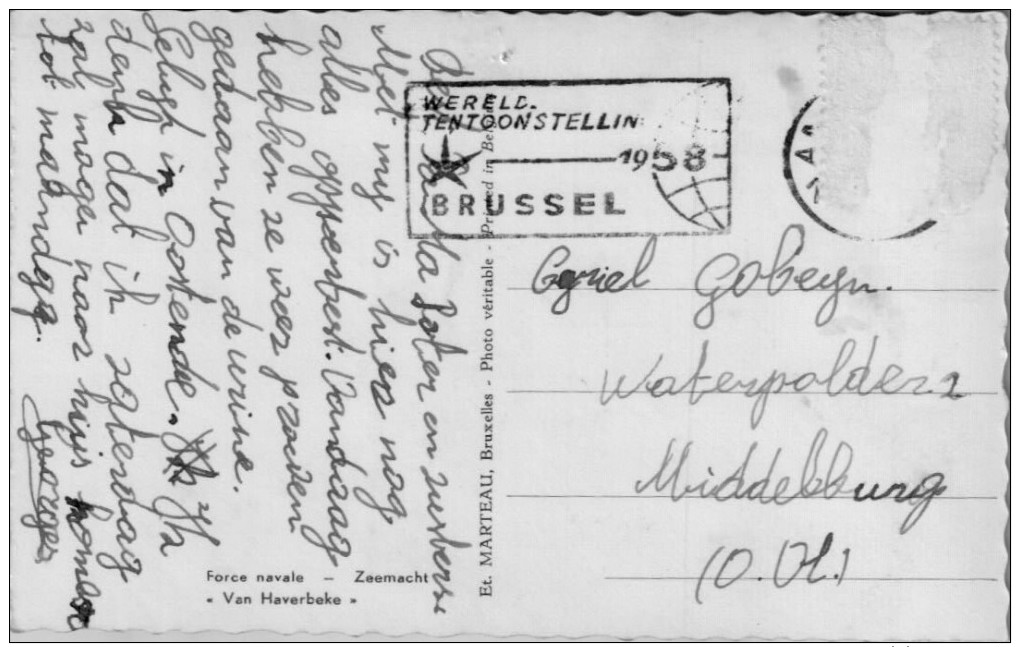 Met my is hier nog
alles opperbest. Vandaag
hebben ze weer proeven
gedaan van de urine.
Selugh in Oostende. Ik
denk dat ik zaterdag
zal mogen naar huis komen
tot maandag.
Georges
WERELD-
TENTOONSTELLIN
1958
BRUSSEL
Et. MARTEAU, Bruxelles - Photo véritable - Printed in Be
Gobeyn.
Waterpolder 2
Middelburg
(O. Vl.)
Force navale – Zeemacht
« Van Haverbeke »